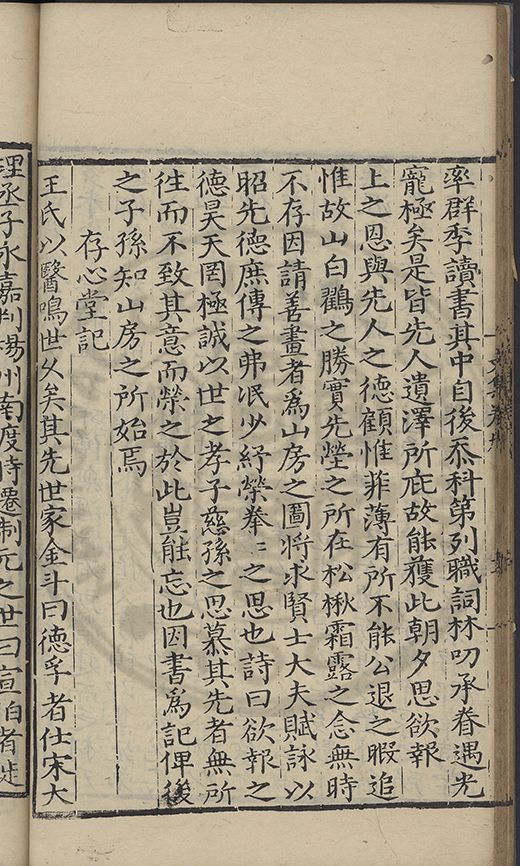 率群季讀書其中自後忝科第列職詞林叨承眷遇光
寵極矣是皆先人遺澤所庇故能獲此朝夕思欲報
上之恩與先人之德顧惟菲薄有所不能公退之暇追
惟故山白鸛之勝實先塋之所在松楸霜露之念無時
不存因請善畫者爲山房之圖將求賢士大夫賦詠以
昭先德庶傳之弗泯少紓㷀拳〻之思也詩曰欲報之
德昊天罔極誠以世之孝子慈孫之思慕其先者無所
徃而不致其意而榮之於此豈能忘也因書爲記俾後
之子孫知山房之所始焉
存心堂記
王氏以醫鳴世久矣其先世家金斗曰德孚者仕宋大
理丞子永嘉判揚州南度時遷制元之世曰宣伯者